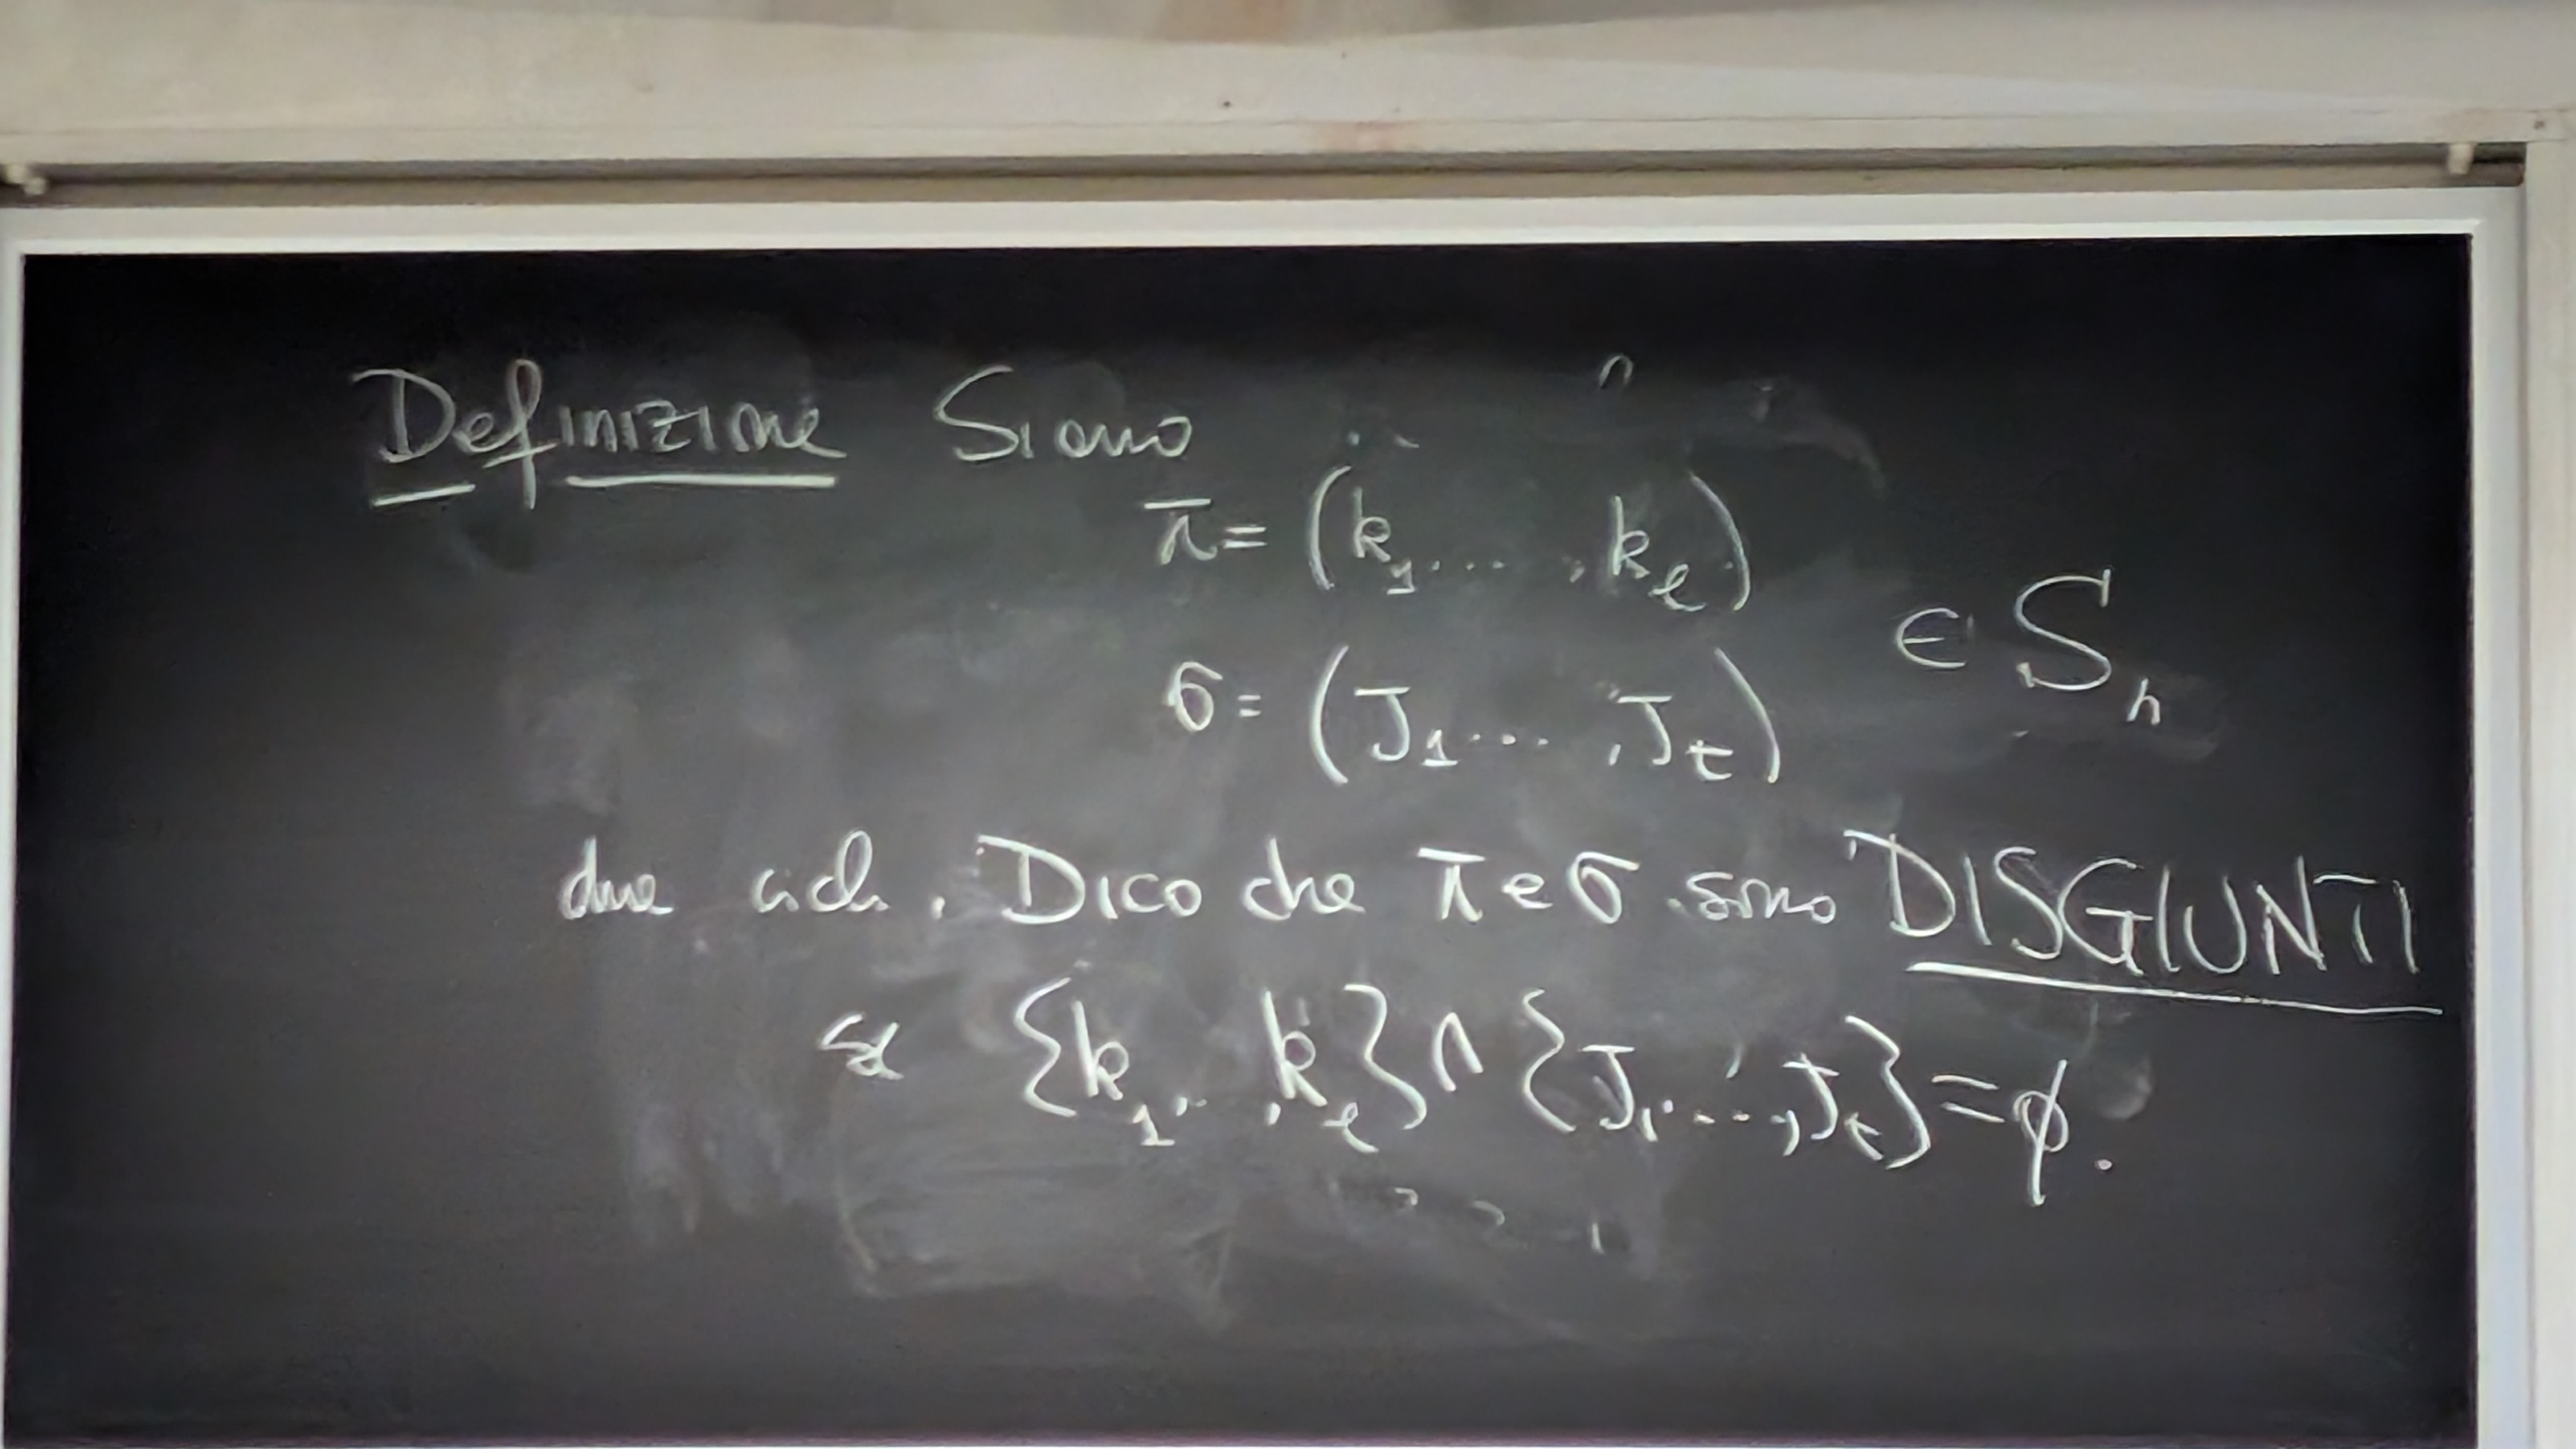 Definizione Siano
π = (k₁ ... , kₗ)
∈ Sₙ
σ = (J₁ ... , Jₜ)
due cicli. Dico che π e σ sono DISGIUNTI
se {k₁, .. , kₗ} ∩ {J₁, ... , Jₜ} = ϕ.